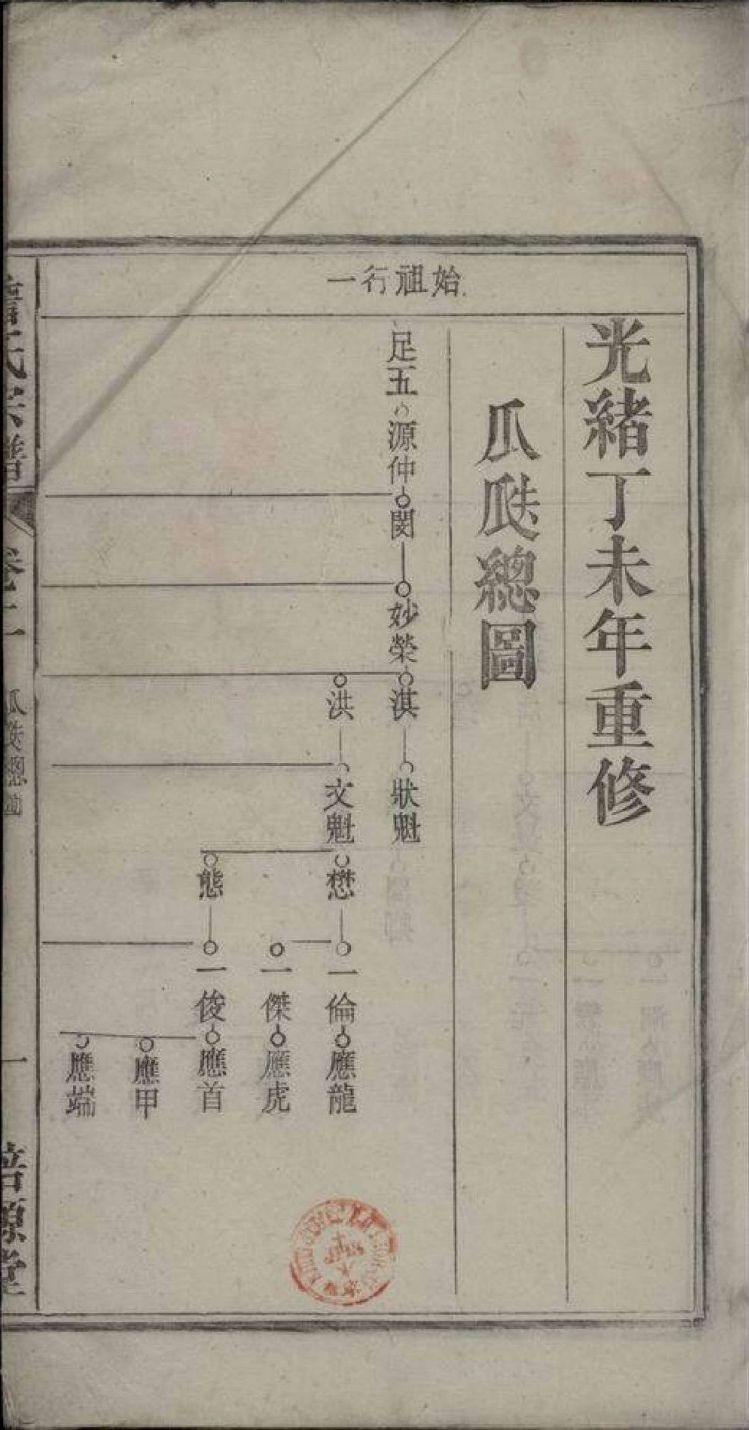 光緒丁未年重修
瓜瓞總圖
始祖行一
足五 源仲 閔 妙榮 淇 狀魁
洪 文魁 懋 一倫 應龍
一傑 應虎
態 一俊 應首
應甲
應端
氏宗譜 卷二 瓜瓞總圖 一 培源堂